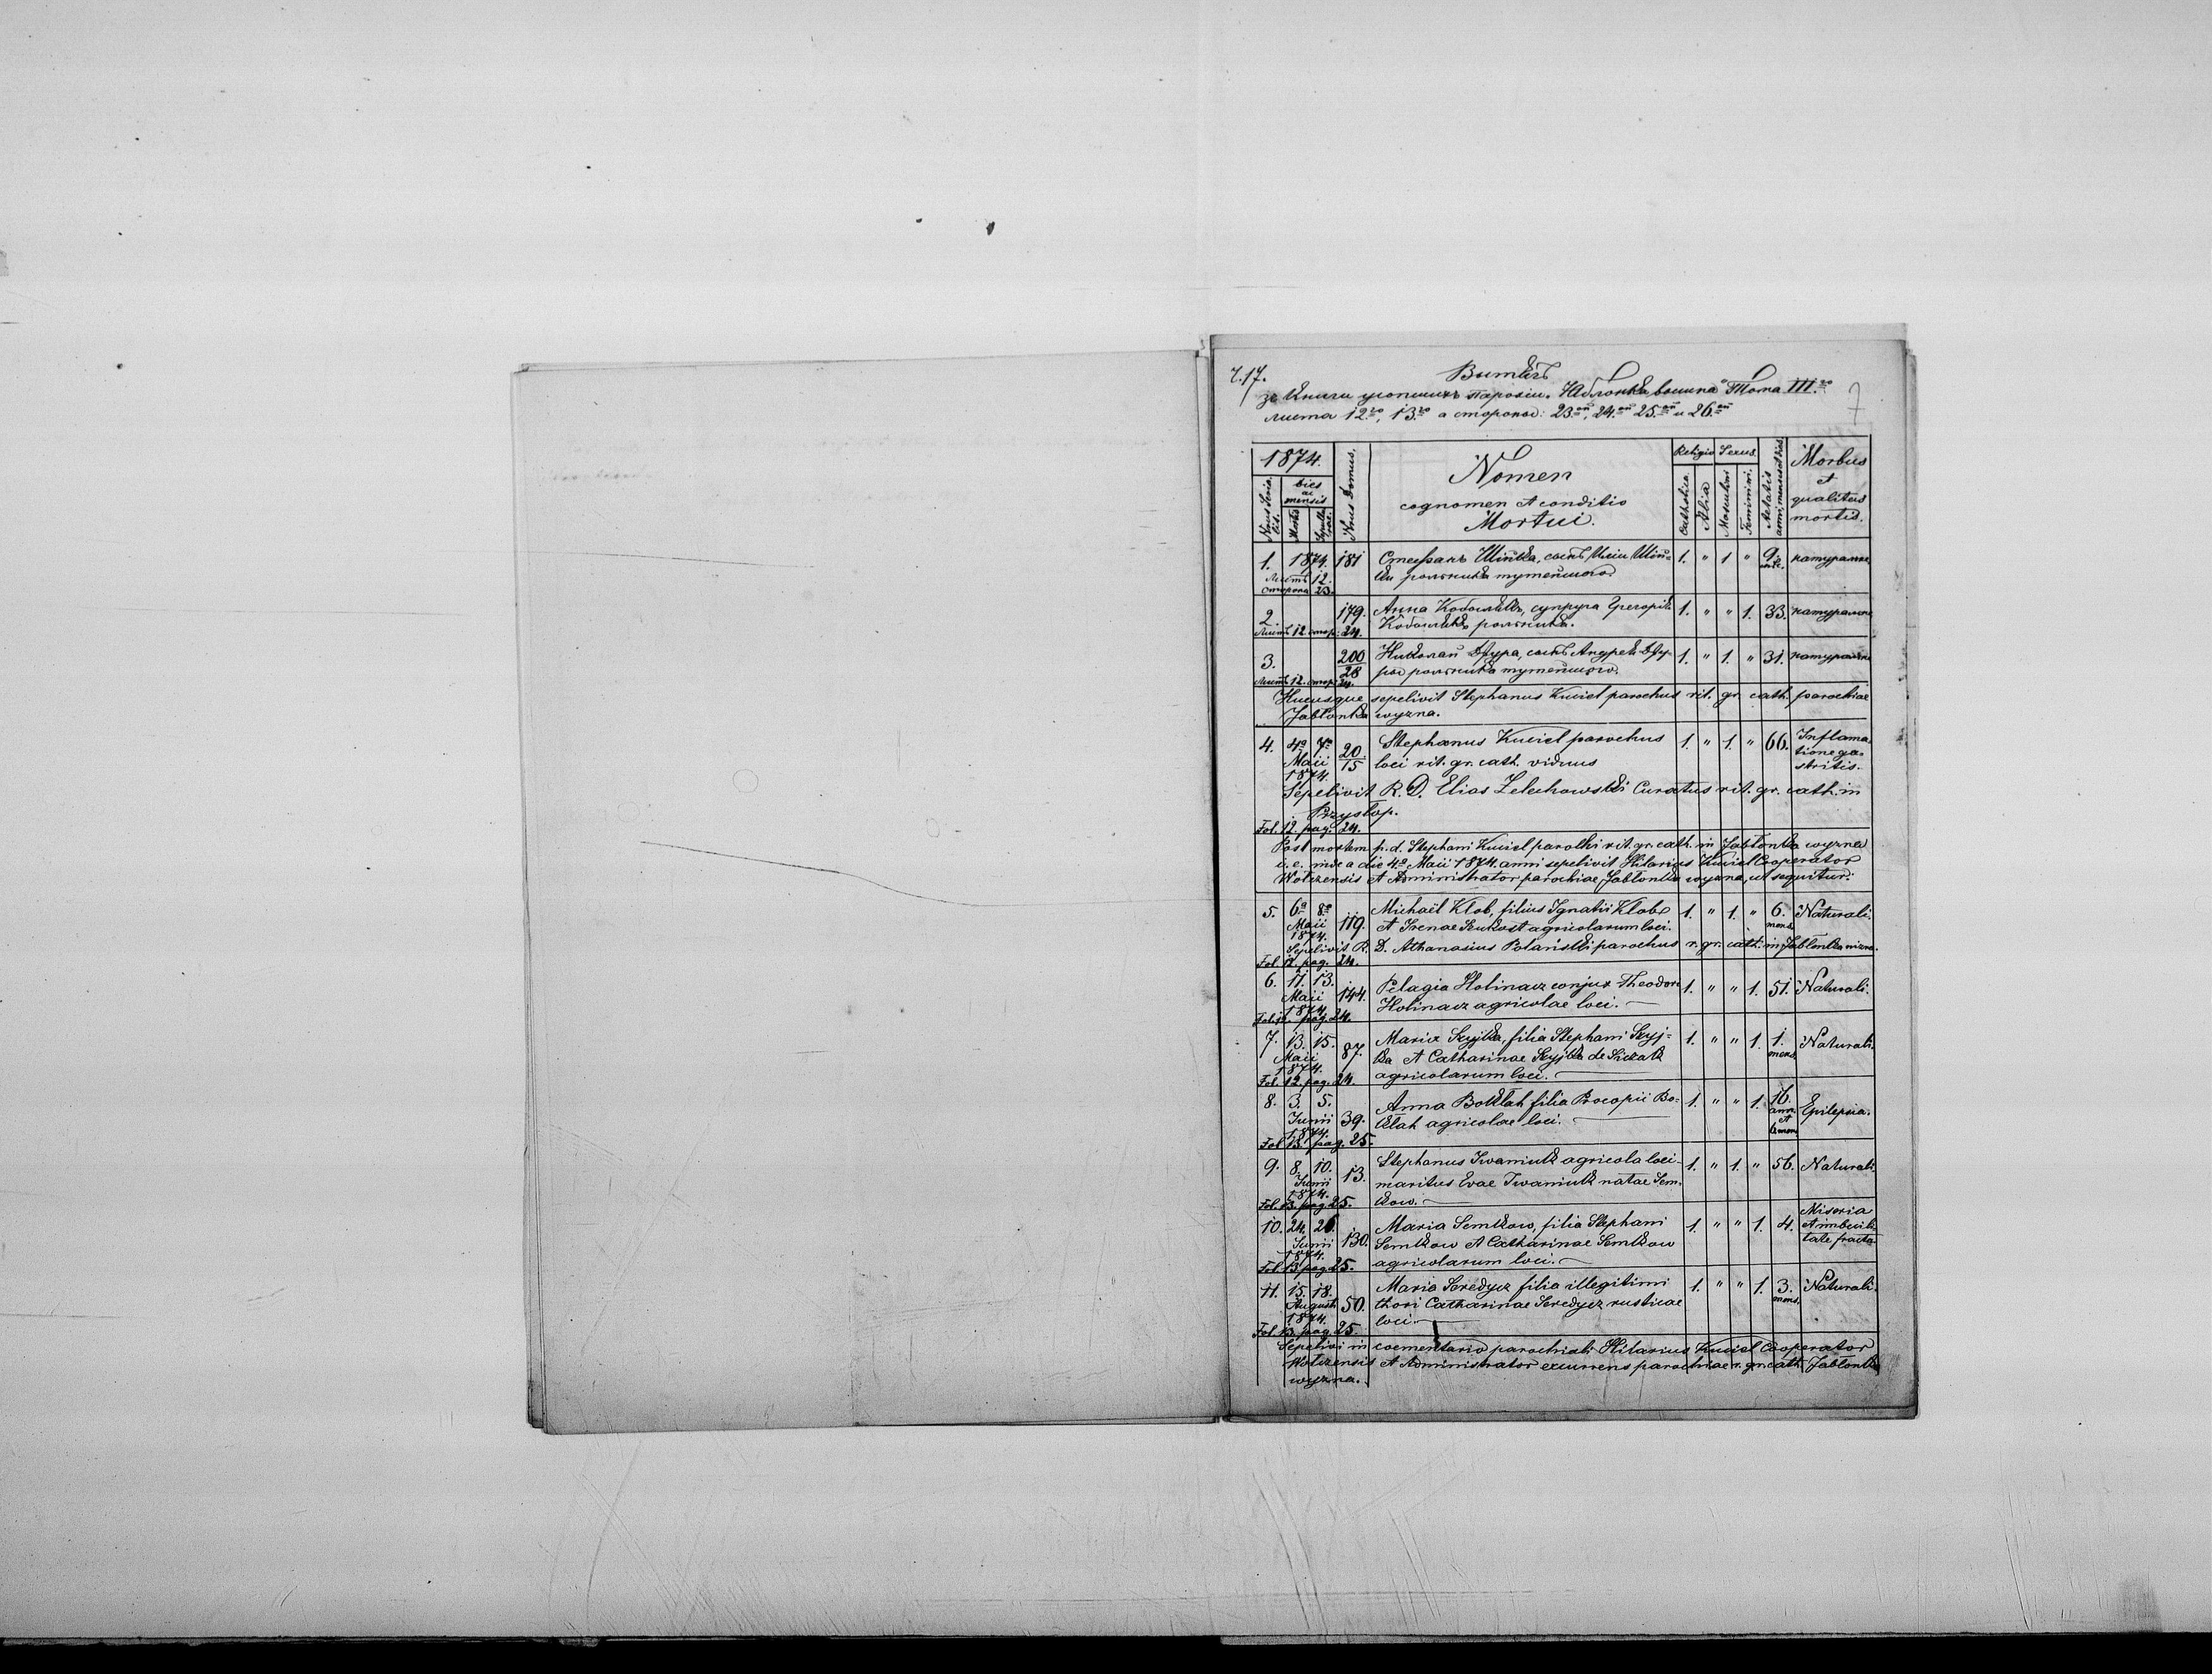 Ч. 17.
Витягъ
зъ Книги умершихъ парохіи „Яблонка вышна" Тома III.го
7
листа 12.го, 13.го а стороны: 23.ои, 24.ои 25.ои и 26.ои
1874. Nrus Domus. Nomen Religio Sexus Aetatis Morbus
Nrus Serialis. Dies ac mensis cognomen et conditio Catholica Alia Masculini Feminini. et qualitas
Mortis Sepulturae. Mortui. mortis.
1. 1874. 181 Стефанъ Шійка, сынъ Иліи Шій- 1. " 1 " 9 натуральна
Листъ 12. ки рольника тутейшого.
сторона 23.
2. 179. Анна Кобылякъ, супруга Григорія 1. " " 1. 33. натуральна
Листъ 12 стор: 24. Кобылякъ рольника.
3. 200/28 Николай Дзура, сынъ Андрея Дзу- 1. " 1. " 31. натуральна
Листъ 12. стор: 24. ры рольника тутейшого.
Hucusque sepelivit Stephanus Kuciel parochus rit. gr. cath. parochiae
Jabłonka wyzna.
4. 4a 7a 20/15 Stephanus Kuciel parochus 1. " 1. " 66. Inflama-
Maii loci rit. gr. cath. viduus tione ga-
1874. stritis.
Sepelivit R. D. Elias Zelechowski Curatus rit. gr. cath. in
Przysłop.
Fol. 12. pag. 24.
Post mortem p. d. Stephani Kuciel parochi rit. gr. cath. in Jabłonka wyzna
i. e. inde a die 4a Maii 1874. anni sepelivit Hilarius Kuciel Cooperator
Wołczensis et Administrator parochiae Jabłonka wyzna, ut sequitur:
5. 6a 8a 119. Michaël Klob, filius Ignatii Klob 1. " 1. " 6. Naturali.
Maii et Irenae Szukost agricolarum loci. mens.
1874.
Sepelivit R. D. Athanasius Polański parochus r. gr. cath. in Jabłonka nizna.
Fol. 12. pag. 24.
6. 11. 13. 144. Pelagia Holinacz conjux Theodori 1. " " 1. 51. Naturali.
Maii Holinacz agricolae loci.
1874.
Fol. 12. pag. 24.
7. 13. 15. 87. Maria Szyjka, filia Stephani Szyj- 1. " " 1. 1. Naturali.
Maii ka et Catharinae Szyjka de Siczak mens.
1874. agricolarum loci.
Fol. 12. pag. 24.
8. 3. 5. 39. Anna Boklah filia Procopii Bo- 1. " " 1. 16. Epilepsia.
Junii klah agricolae loci. ann. et
1874. mens.
Fol 13. pag. 25.
9. 8. 10. 13. Stephanus Iwaniuk agricola loci 1. " 1. " 56. Naturali.
Junii maritus Evae Iwaniuk natae Sem-
1874. kow.
Fol. 13. pag. 25.
10. 24. 26. 130. Maria Semkow, filia Stephani 1. " " 1. 4. Miseria
Junii Semkow et Catharinae Semkow et imbecili-
1874. agricolarum loci. tate fracta.
Fol. 13 pag. 25.
11. 15. 18. 50. Maria Seredycz filia illegitimi 1. " " 1. 3. Naturali.
Augusti thori Catharinae Seredycz rusticae mens.
1874. loci.
Fol. 13. pag. 25.
Sepelivi in coementario parochiali Hilarius Kuciel Cooperator
Wołczensis et Administrator excurrens parochiae r. gr. cath. Jabłonka
wyzna.